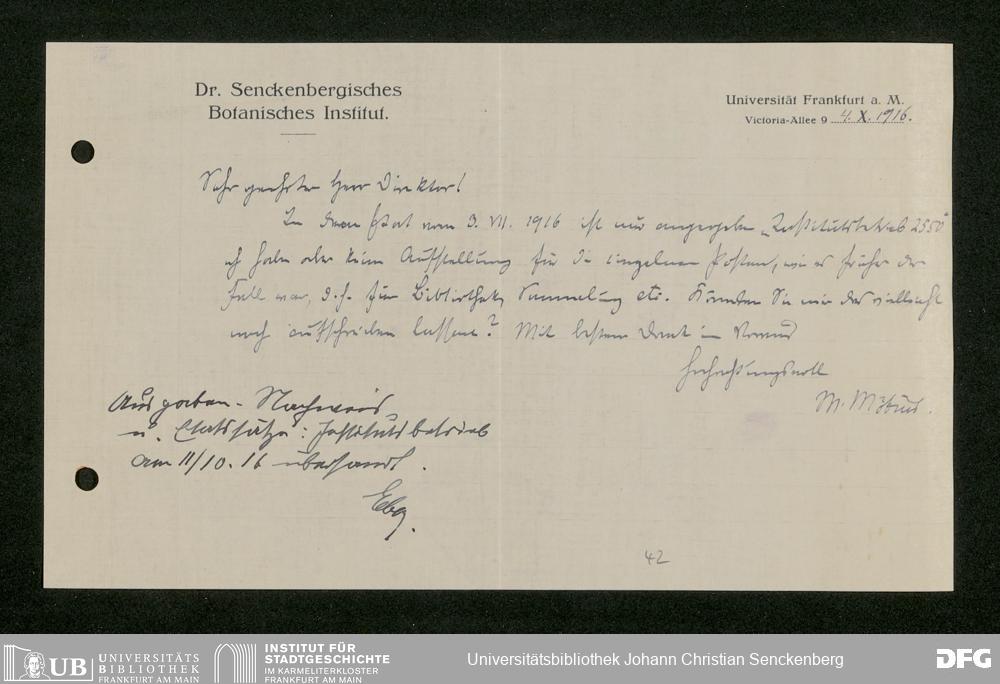 Dr. Senckenbergisches
Botanisches Institut.
Universität Frankfurt a. M.
Victoria-Allee 9 4. X. 1916.
Sehr geehrter Herr Direktor!
In dem Etat vom 3. VII. 1916 ist nur angegeben „Institutsbetrieb 2550"
ich habe aber keine Aufstellung für die einzelnen Posten, wie es früher der
Fall war, d. h. für Bibliothek, Sammlung etc. Könnten Sie mir das vielleicht
noch aufschreiben lassen? Mit bestem Dank im Voraus
Hochachtungsvoll
M. Möbius.
Ausgaben-Nachweis
u. Etatssätze: Institutsbetrieb
am 11/10. 16 übersandt.
Ebg.
42
UB UNIVERSITÄTS
BIBLIOTHEK
FRANKFURT AM MAIN
INSTITUT FÜR
STADTGESCHICHTE
IM KARMELITERKLOSTER
FRANKFURT AM MAIN
Universitätsbibliothek Johann Christian Senckenberg
DFG